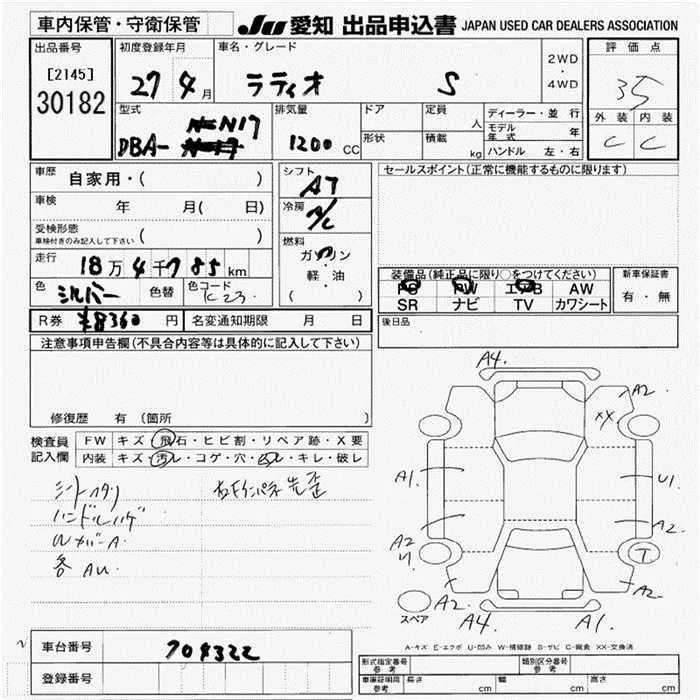 車内保管・守衛保管
JU 愛知 出品申込書 JAPAN USED CAR DEALERS ASSOCIATION
出品番号
[2145]
30182
初度登録年月
27 4 月
車名・グレード
ラティオ S
2WD
・
4WD
評 価 点
3.5
外 装 内 装
C C
型式
DBA- N17
排気量
1200 CC
ドア
形状
定員
人
積載
kg
ディーラー・並 行
モデル年式 年
ハンドル 左・右
車歴
自家用・( )
車検
年 月( 日)
受検形態
車検付きのみ記入して下さい ( )
走行
18万4千785km
色
シルバー
色替
色コード
K23
R券 ¥8360 円
名変通知期限 月 日
シフト
AT
冷房
A/C
燃料
ガソリン
・
軽・油
( )
セールスポイント(正常に機能するものに限ります)
装備品(純正品に限り○をつけてください)
PS PW エアB AW
SR ナビ TV カワシート
新車保証書
有・無
後日品
注意事項申告欄(不具合内容等は具体的に記入して下さい)
修復歴 有 (箇所 )
検査員
記入欄
FW キズ・飛石・ヒビ割・リペア跡・X要
内装 キズ・汚レ・コゲ・穴・凹レ・キレ・破レ
シートヘタリ
ハンドルハゲ
各 AU
A4.
A2
XX
A1.
U1
A2
A2.
U
T
A2.
A2.
A4
A1.
スペア
A-キズ E-エクボ U-凹み W-補修跡 S-サビ C-腐食 XX-交換済
車台番号
704322
登録番号
型式指定番号
参考
類別区分番号
参考
車庫証明用
参考
長さ cm
幅 cm
高さ cm